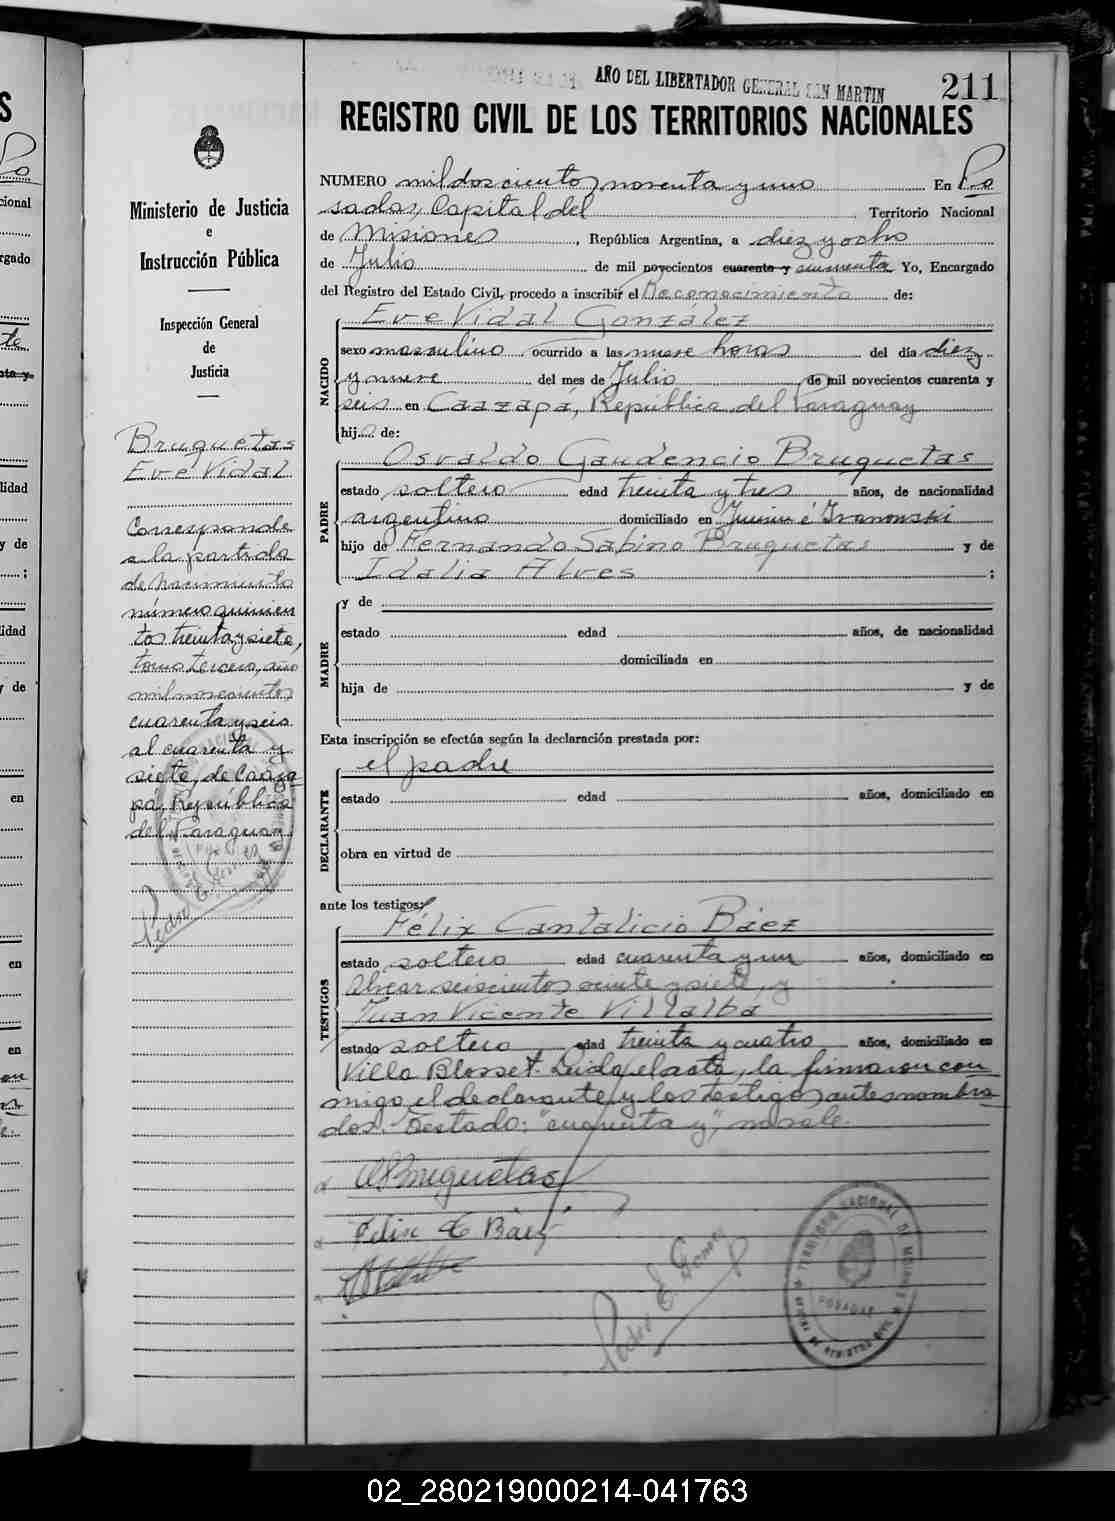 AÑO DEL LIBERTADOR GENERAL SAN MARTIN
211
REGISTRO CIVIL DE LOS TERRITORIOS NACIONALES
NUMERO mil doscientos noventa y uno En Po
sadas, Capital del Territorio Nacional
de Misiones, República Argentina, a diez y ocho
de Julio de mil novecientos cuarenta y cincuenta Yo, Encargado
del Registro del Estado Civil, procedo a inscribir el Reconocimiento de:
Eve Vidal González
NACIDO
sexo masculino ocurrido a las nueve horas del día diez
y nueve del mes de Julio de mil novecientos cuarenta y
seis en Caazapá, República del Paraguay
hijo de:
Osvaldo Gaudencio Bruquetas
PADRE
estado soltero edad treinta y tres años, de nacionalidad
argentino domiciliado en Junin é Ivanowski
hijo de Fernando Sabino Bruquetas y de
Idalia Alves ;
MADRE
y de
estado edad años, de nacionalidad
domiciliada en
hija de y de
Esta inscripción se efectúa según la declaración prestada por:
el padre
DECLARANTE
estado edad años, domiciliado en
obra en virtud de
ante los testigos:
Félix Cantalicio Báez
TESTIGOS
estado soltero edad cuarenta y un años, domiciliado en
Alvear seiscientos veinte y siete, y
Juan Vicente Villalba
estado soltero edad treinta y cuatro años, domiciliado en
Villa Blosset. Leida el acta, la firmaron con
migo el declarante y los testigos antes nombra
dos. Testado: "cuarenta y", no vale.
OBruquetas
Felix C Báez
Pedro E Gomez
TERRITORIO NACIONAL DE MISIONES
POSADAS
Ministerio de Justicia
e
Instrucción Pública
Inspección General
de
Justicia
Bruquetas
Eve Vidal
Corresponde
a la partida
de nacimiento
número quinien
tos treinta y siete,
tomo tercero, año
mil novecientos
cuarenta y seis
al cuarenta y
siete, de Caaza
pa, República
del Paraguay
Pedro E Gomez
02_280219000214-041763